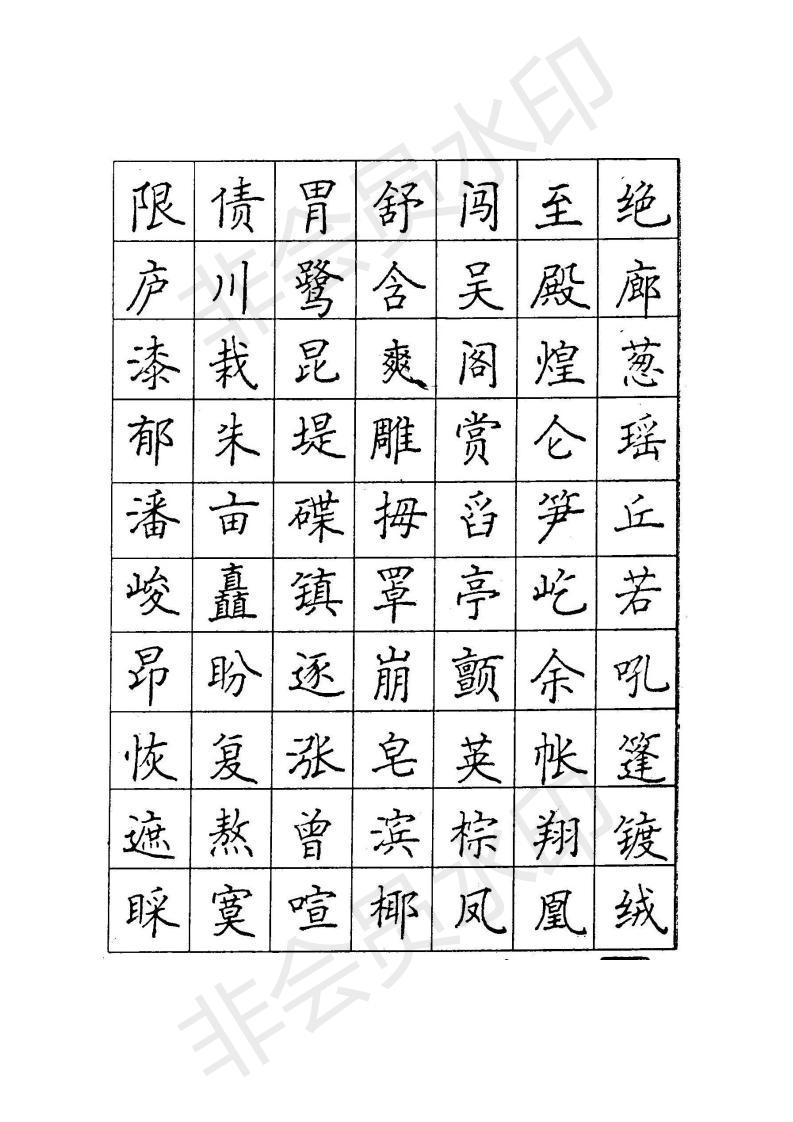 限 债 胃 舒 闯 至 绝
庐 川 鹭 含 吴 殿 廊
漆 栽 昆 爽 阁 煌 葱
郁 朱 堤 雕 赏 仑 瑶
潘 亩 碟 拇 舀 笋 丘
峻 矗 镇 罩 亭 屹 若
昂 盼 逐 崩 颤 余 吼
恢 复 涨 皂 英 帐 篷
遮 熬 曾 滨 棕 翔 镀
睬 寞 喧 椰 凤 凰 绒
非会员水印
非会员水印